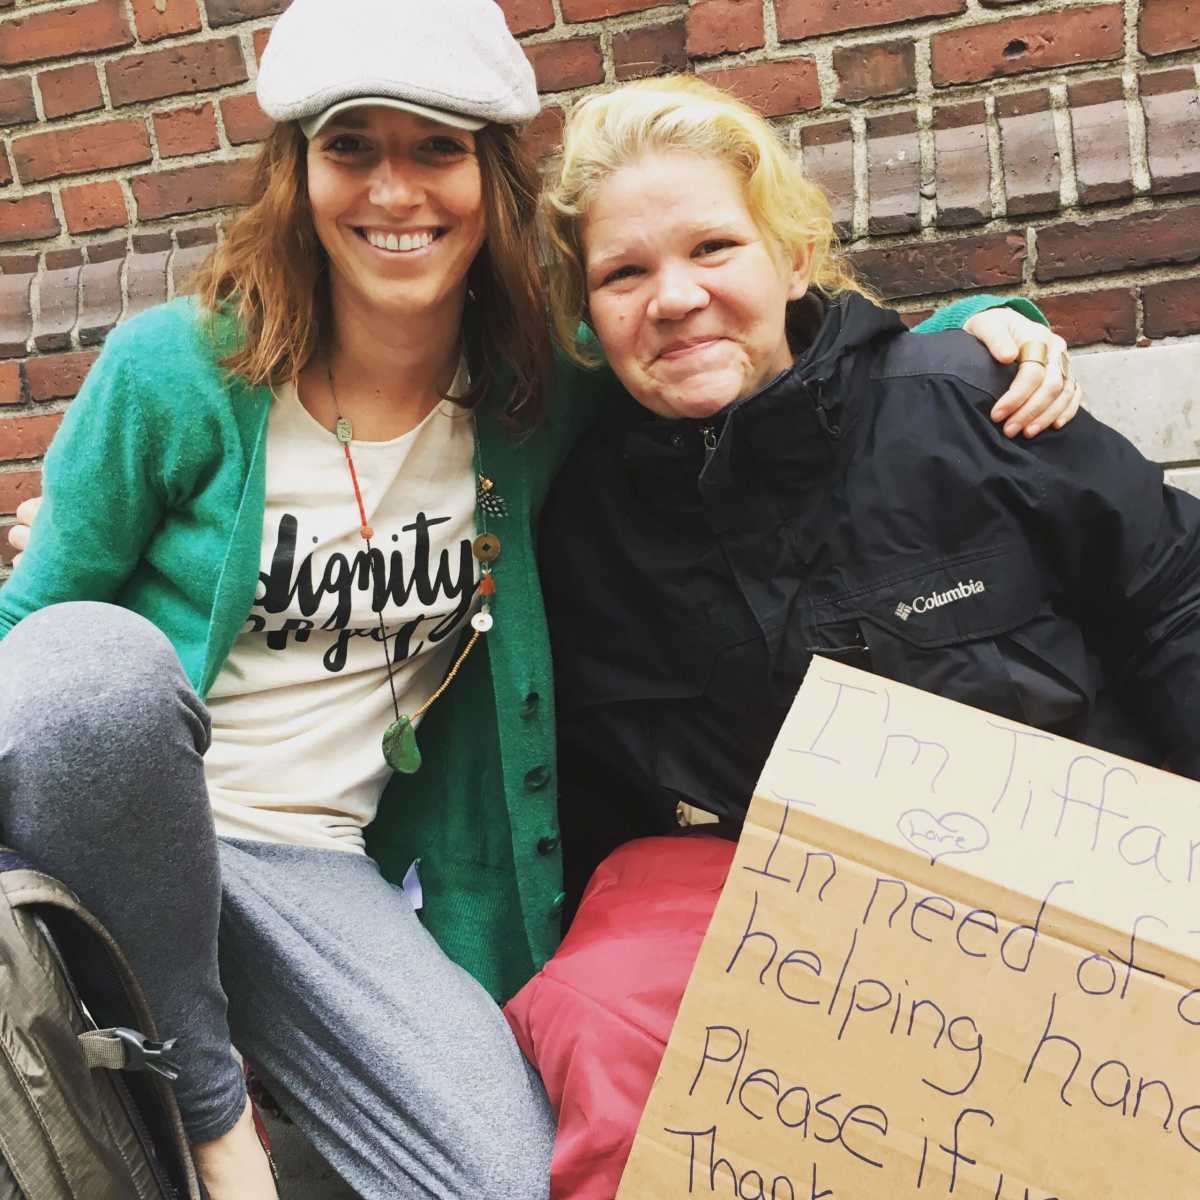 dignity
project
Columbia
I'm Tiffan
Love
In need of a
helping hand
Please if
Thank